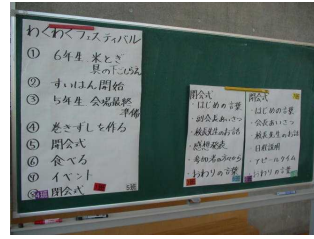 わくわくフェスティバル
① 6年生 米とぎ
具の下ごしらえ
② すいはん開始
③ 5年生 会場最終
準備
④ 巻きずしを作る
⑤ 開会式
⑥ 食べる
⑦ イベント
⑧ 閉会式
閉会式
・はじめの言葉
・副会長あいさつ
・校長先生のお話
・感想発表
・参加者の方から
・おわりの言葉
開会式
・はじめの言葉
・会長あいさつ
・校長先生のお話
・日程説明
・アピールタイム
・おわりの言葉